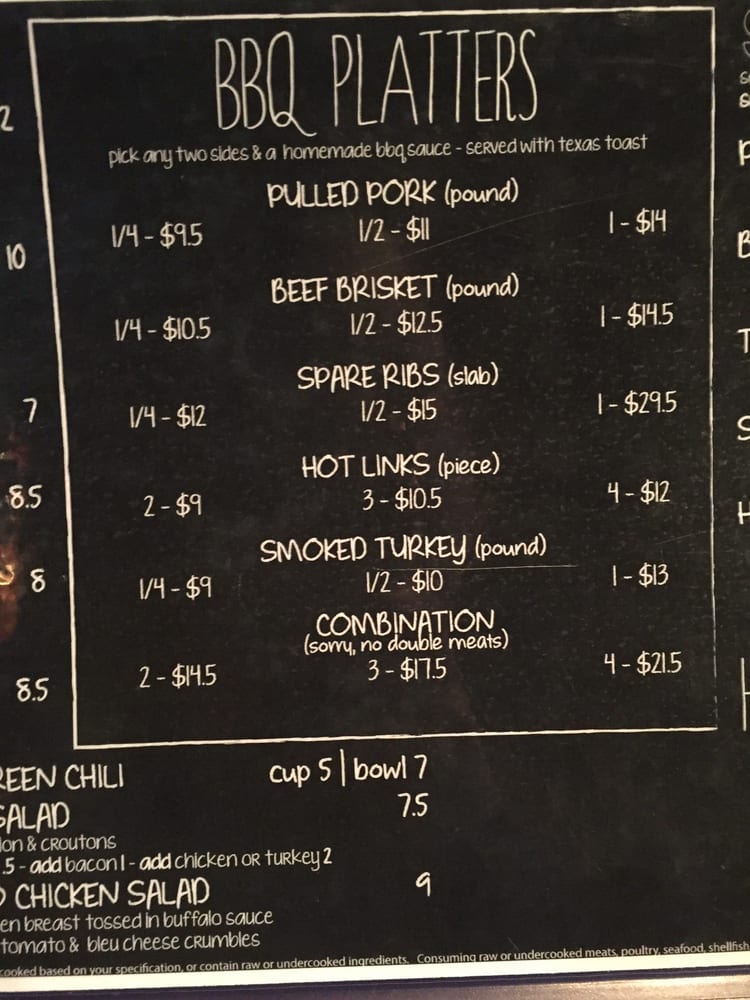 BBQ PLATTERS
pick any two sides & a homemade bbq sauce - served with texas toast
PULLED PORK (pound)
1/4 - $9.5 1/2 - $11 1 - $14
BEEF BRISKET (pound)
1/4 - $10.5 1/2 - $12.5 1 - $14.5
SPARE RIBS (slab)
1/4 - $12 1/2 - $15 1 - $29.5
HOT LINKS (piece)
2 - $9 3 - $10.5 4 - $12
SMOKED TURKEY (pound)
1/4 - $9 1/2 - $10 1 - $13
COMBINATION
(sorry, no double meats)
2 - $14.5 3 - $17.5 4 - $21.5
10
7
8.5
8
8.5
CHILI cup 5 | bowl 7
SALAD 7.5
& CROUTONS
.5 - add bacon 1 - add chicken OR turkey 2
CHICKEN SALAD 9
breast tossed in buffalo sauce
tomato & bleu cheese crumbles
cooked based on your specification, or contain raw or undercooked ingredients. Consuming raw or undercooked meats, poultry, seafood, shellfish